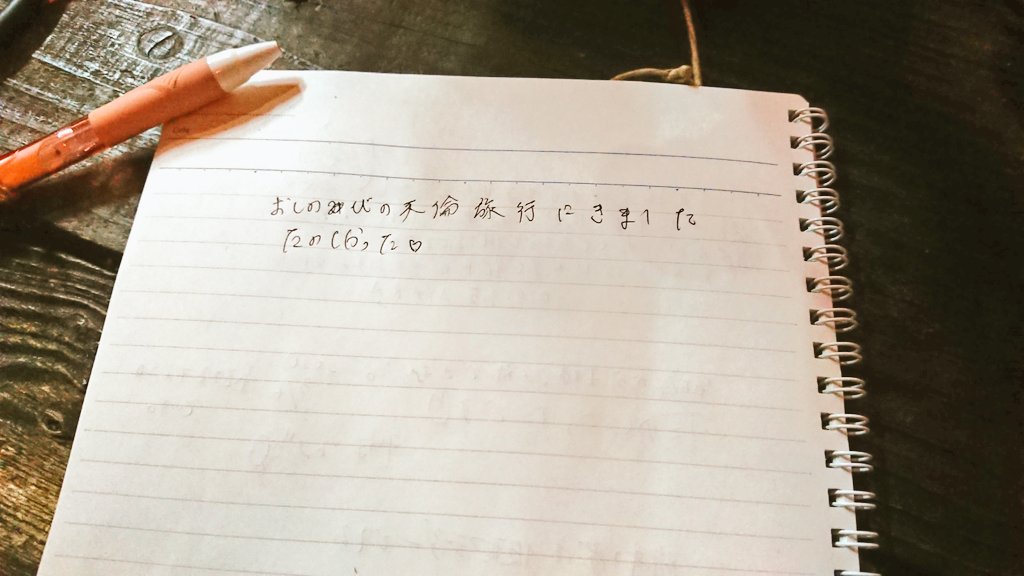 おしのびの不倫旅行にきました
たのしかった♡